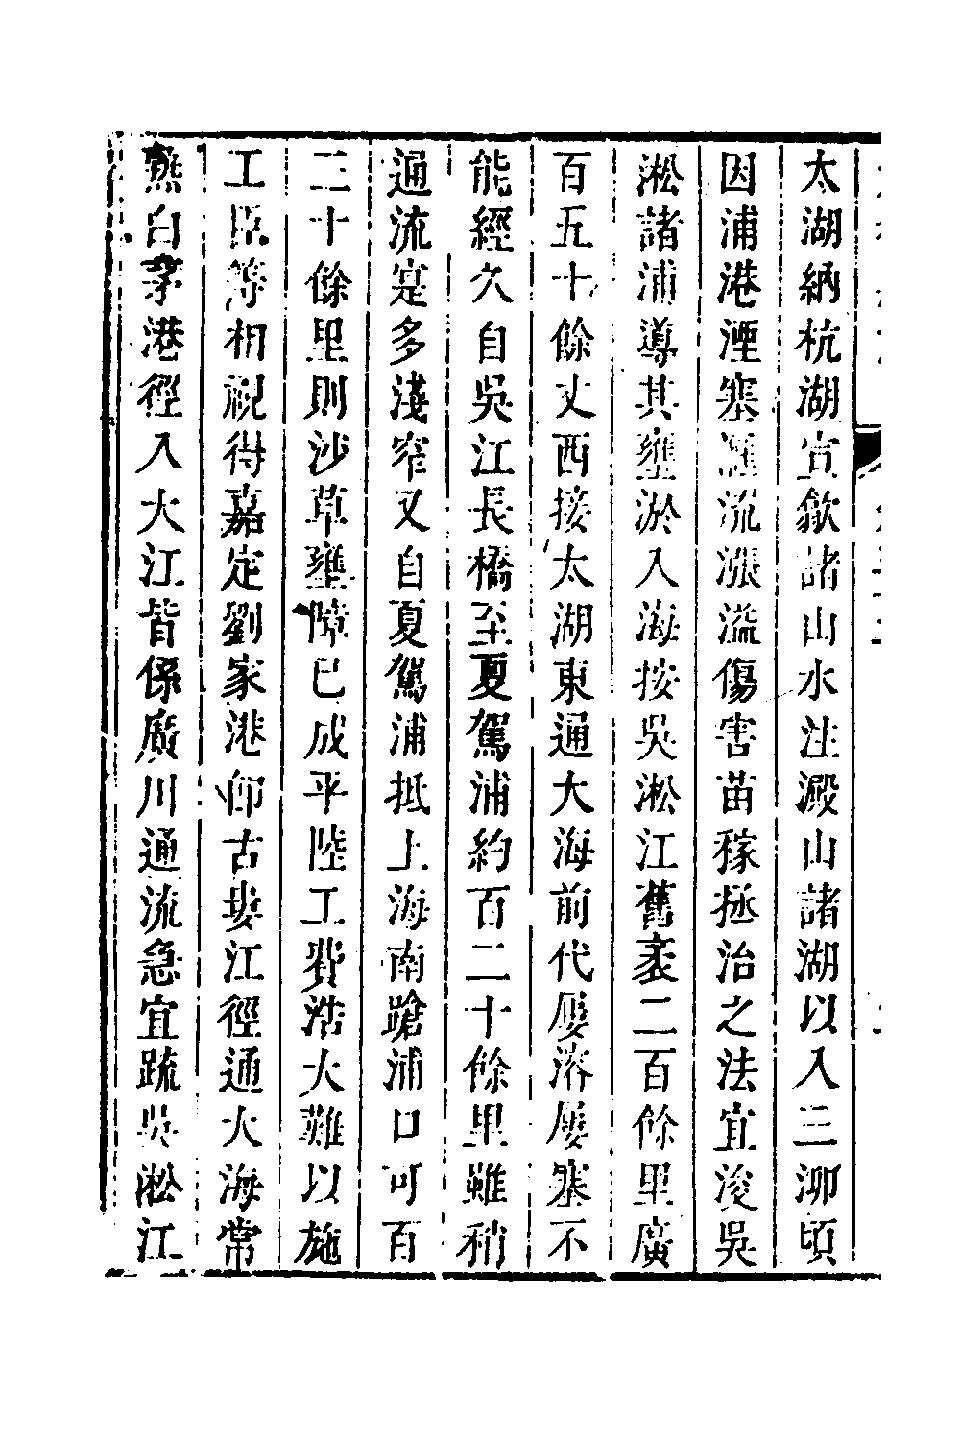 太湖納杭湖宣歙諸山水注澱山諸湖以入三泖頃
因浦港湮塞滙流漲溢傷害苗稼拯治之法宜浚吳
淞諸浦導其壅淤入海按吳淞江舊袤二百餘里廣
百五十餘丈西接太湖東通大海前代屢濬屢塞不
能經久自吳江長橋至夏駕浦約百二十餘里雖稍
通流寔多淺窄又自夏駕浦抵上海南蹌浦口可百
三十餘里則沙草壅障已成平陸工費浩大難以施
工臣等相視得嘉定劉家港卽古婁江徑通大海常
熟白茅港徑入大江皆係廣川通流急宜疏吳淞江